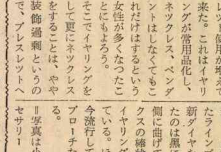 し、使用が増えて
来た。これはイヤリ
ングが常用品化し、
ネックレス、ペンダ
ントはしなくてもこ
れだけはするという
女性が多くなったこ
とにもよろう。
そこでイヤリングを
して更にネックレス
をすることは、やや
装飾過剰というの
で、ブレスレットへ
たライン
新ダイヤ
たのは黒
側に曲げ
クスの確
イヤリン
ている。
今流行し
ブローチ
る。
＝写真は小
セサリー